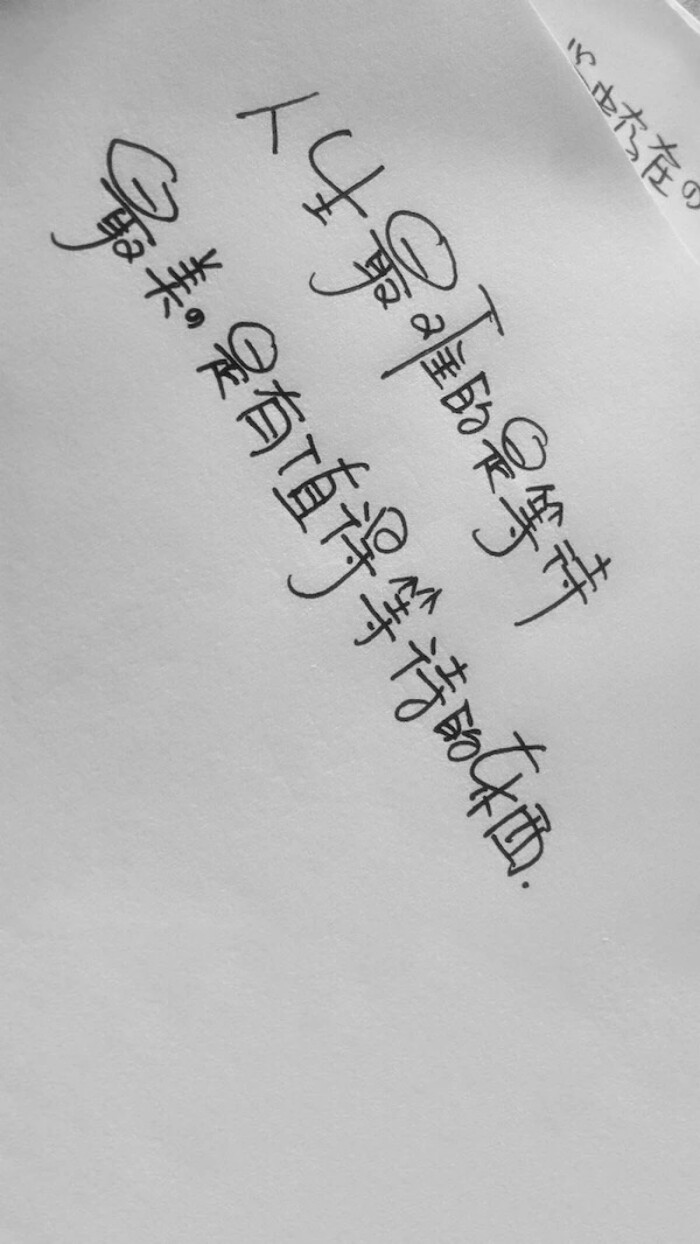 人生最难的是等待
最美の是有值得等待的东西.
存在の